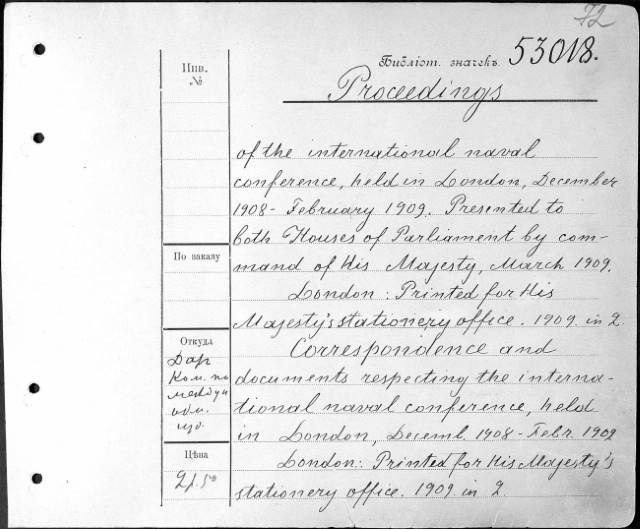 72
Инв.
№
Библіот. значекъ. 53018.
Proceedings
of the international naval
conference, held in London, December
1908 - February 1909. Presented to
both Houses of Parliament by com-
mand of His Majesty, March 1909.
London: Printed for His
Majesty's stationery office. 1909. in 2.
Correspondence and
documents respecting the interna-
tional naval conference, held
in London, Decemb. 1908 - Febr. 1909
London: Printed for His Majesty's
stationery office. 1909. in 2.
По заказу
Откуда
Дар
Ком. по
Цѣна